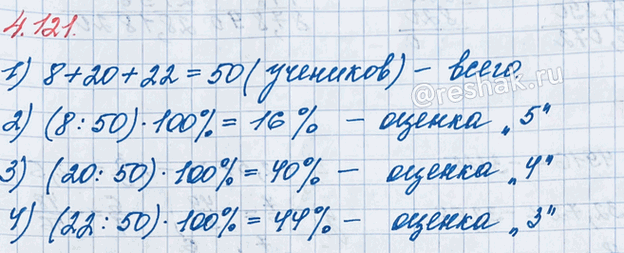 4.121.
1) 8+20+22=50 (учеников) – всего
@reshak.ru
2) (8:50)·100%=16% – оценка „5"
3) (20:50)·100%=40% – оценка „4"
4) (22:50)·100%=44% – оценка „3"